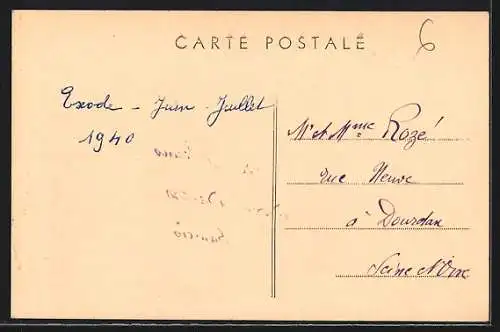 CARTE POSTALE
6
Exode - Juin - Juillet
1940
Mr et Mme Rozé
rue Neuve
à Dourdan
Seine et Oise